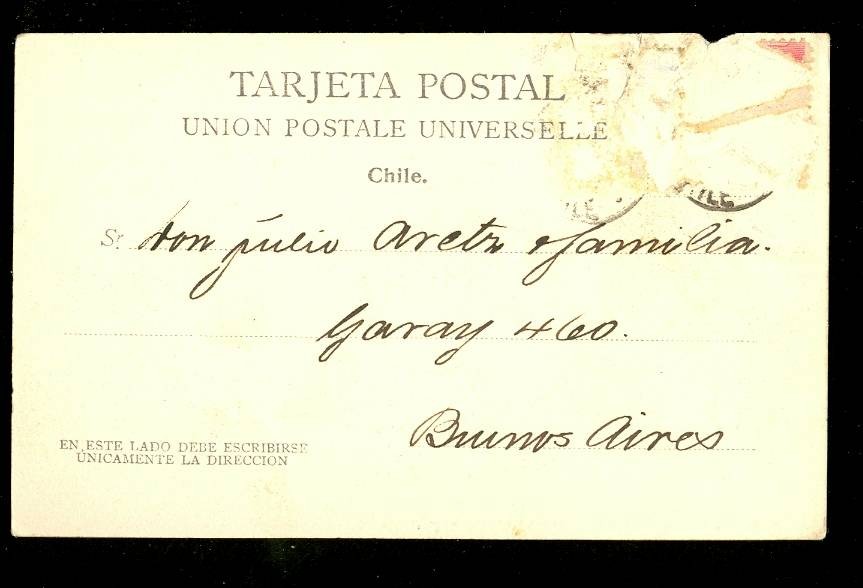 TARJETA POSTAL
UNION POSTALE UNIVERSELLE
Chile.
Sr Don Julio Aretz e familia.
Garay 460.
Buenos Aires
EN ESTE LADO DEBE ESCRIBIRSE
ÚNICAMENTE LA DIRECCION